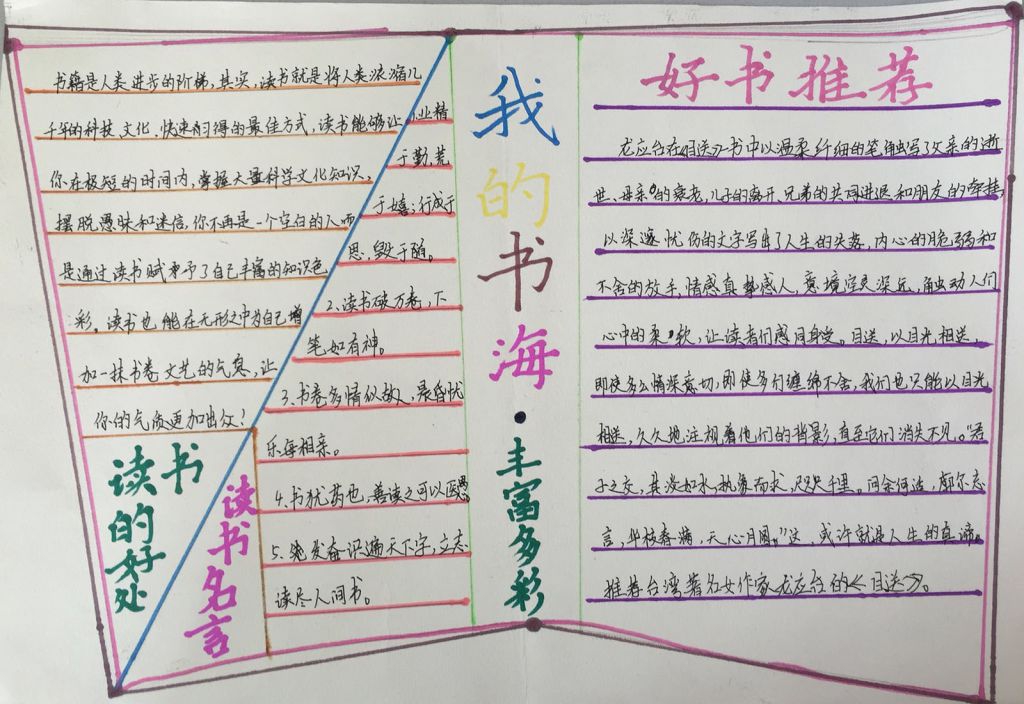 书籍是人类进步的阶梯,其实,读书就是将人类浓缩几
千年的科技、文化、快速习得的最佳方式,读书能够让
你在极短的时间内,掌握大量科学文化知识、
摆脱愚昧和迷信,你不再是一个空白的人而
是通过读书赋予了自己丰富的知识色
彩。读书也能在无形之中为自己增
加一抹书卷文艺的气息,让
你的气质更加出众!
读书
的好处
1.业精
于勤,荒
于嬉;行成于
思,毁于随。
2.读书破万卷,下
笔如有神。
3.书卷多情似故人,晨昏忧
乐每相亲。
4.书犹药也,善读之可以医愚
5.发奋识遍天下字,立志
读尽人间书。
读书名言
我的书海·丰富多彩
好书推荐
龙应台在《目送》一书中以温柔纤细的笔触写了父亲的逝
世、母亲的衰老,儿子的离开、兄弟的共同进退和朋友的牵挂,
以深邃忧伤的文字写出了人生的失落,内心的脆弱和
不舍的放手,情感真挚感人,意境深远,触动人们
心中的柔软,让读者们感同身受。目送,以目光相送,
即使多么情深意切,即使多们缠绵不舍,我们也只能以目光
相送,久久地注视着他们的背影,直至它们消失不见。“君
子之交,其淡如水,执象而求,咫尺千里。问余何适,廓尔忘
言,华枝春满,天心月圆。”这,或许就是人生的真谛。
推荐台湾著名女作家龙应台的《目送》。